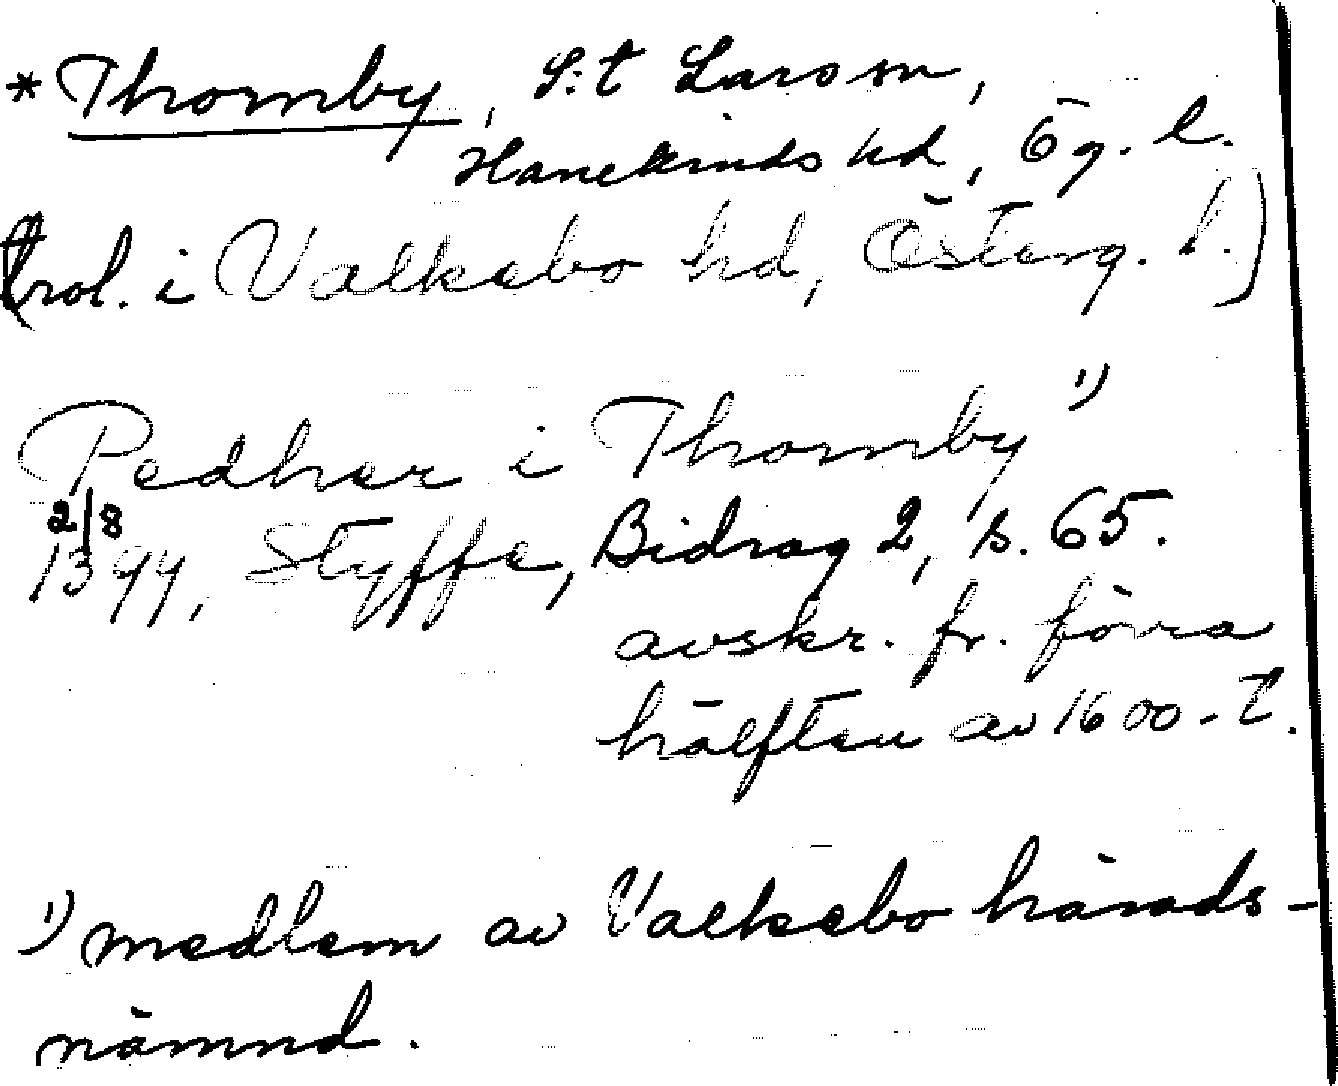 * Thornby, S:t Lars sn,
Hanekinds hd, Ög. l.
(trol. i Valkebo hd, Österg. l.)
Pedher i Thornby 1)
2/8
1394, Styffe, Bidrag 2, s. 65.
avskr. fr. förra
hälften av 1600-t.
1) medlem av Valkebo härads-
nämnd.